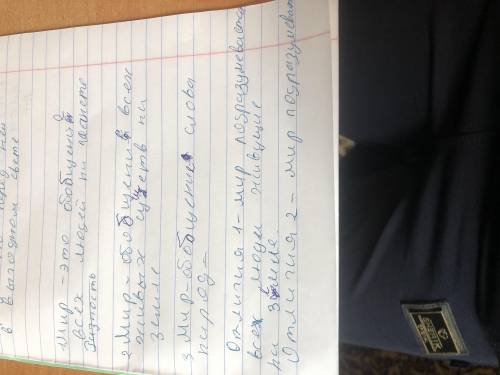 в выгодном свете
1 Мир - это обобщений
всех людей на планете
2 Мир - обобщений всех
живых существ на
земле
3 Мир - обобщение слова
народ -
Отличия 1 - мир подразумевается
всех люди живущие
на земле.
Отличия 2 - мир подразумевает